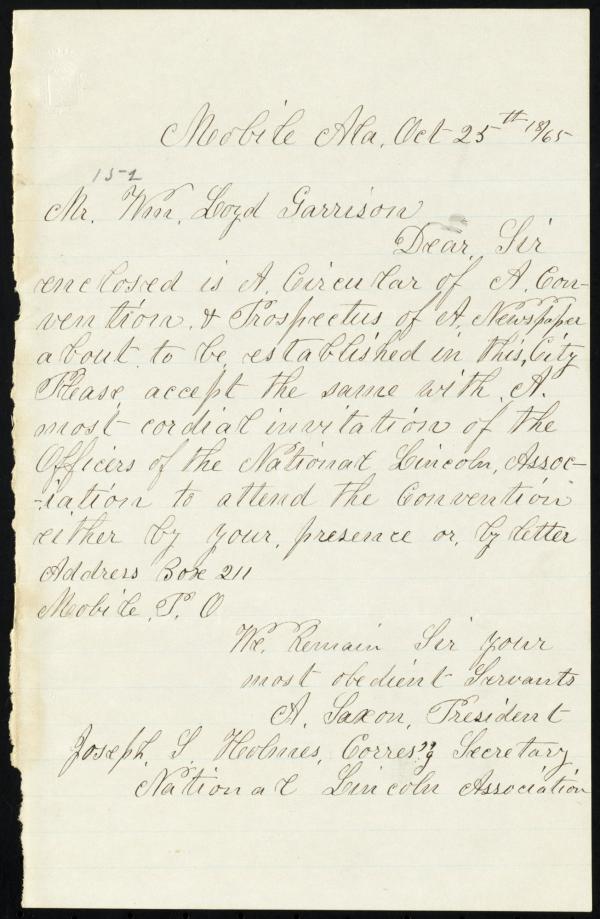 Mobile Ala, Oct 25th 18/65
152
Mr. Wm, Loyd Garrison
Dear, Sir
enclosed is A, Circular of A, Con-
vention, & Prospectus of A, Newspaper
about to be, established in this, City
Please, accept the same with, A.
most cordial invitation of the
Officers of the National, Lincoln, Assoc-
-iation to attend the Convention
either by your, presence or, by letter
Address Box 211
Mobile, P. O
We, Remain Sir your
most obedient Servants
A, Saxon, President
Joseph, S, Holmes, Corres'g Secretary
National Lincoln Association